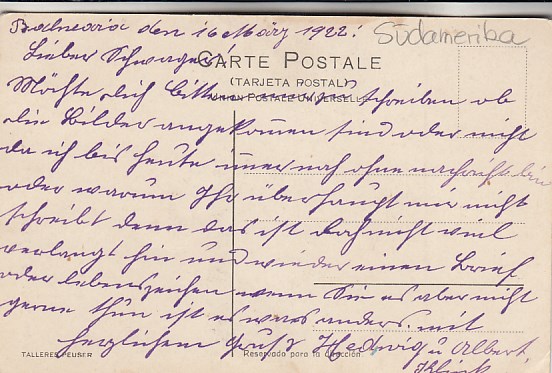 Balnearia den 16 März 1922!
Südamerika
Lieber Schwager!
CARTE POSTALE
(TARJETA POSTAL)
UNION POSTALE UNIVERSELLE
Möchte dich bitten schreiben ob
die Bilder angekommen sind oder nicht
da ich bis heute imer noch ohne nachricht bin
oder warum Ihr überhaupt mir nicht
schreibt denn das ist doch nicht viel
verlangt hin und wieder einen Brief
oder lebenszeichen wenn Sie es aber nicht
gerne thun ist es was anders. mit
herzlichem Gruß Hedwig u Albert
TALLERES PEUSER
Reservado para la dirección